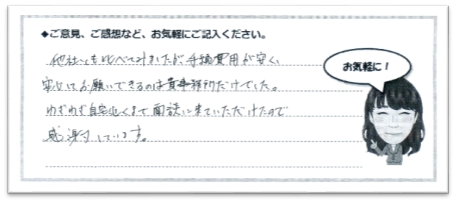 ◆ご意見、ご感想など、お気軽にご記入ください。
他社とも比べてみましたが手続費用が安く、
安心してお願いできるのは貴事務所だけでした。
わざわざ自宅近くまで面談に来ていただけたので
感謝しています。
お気軽に！